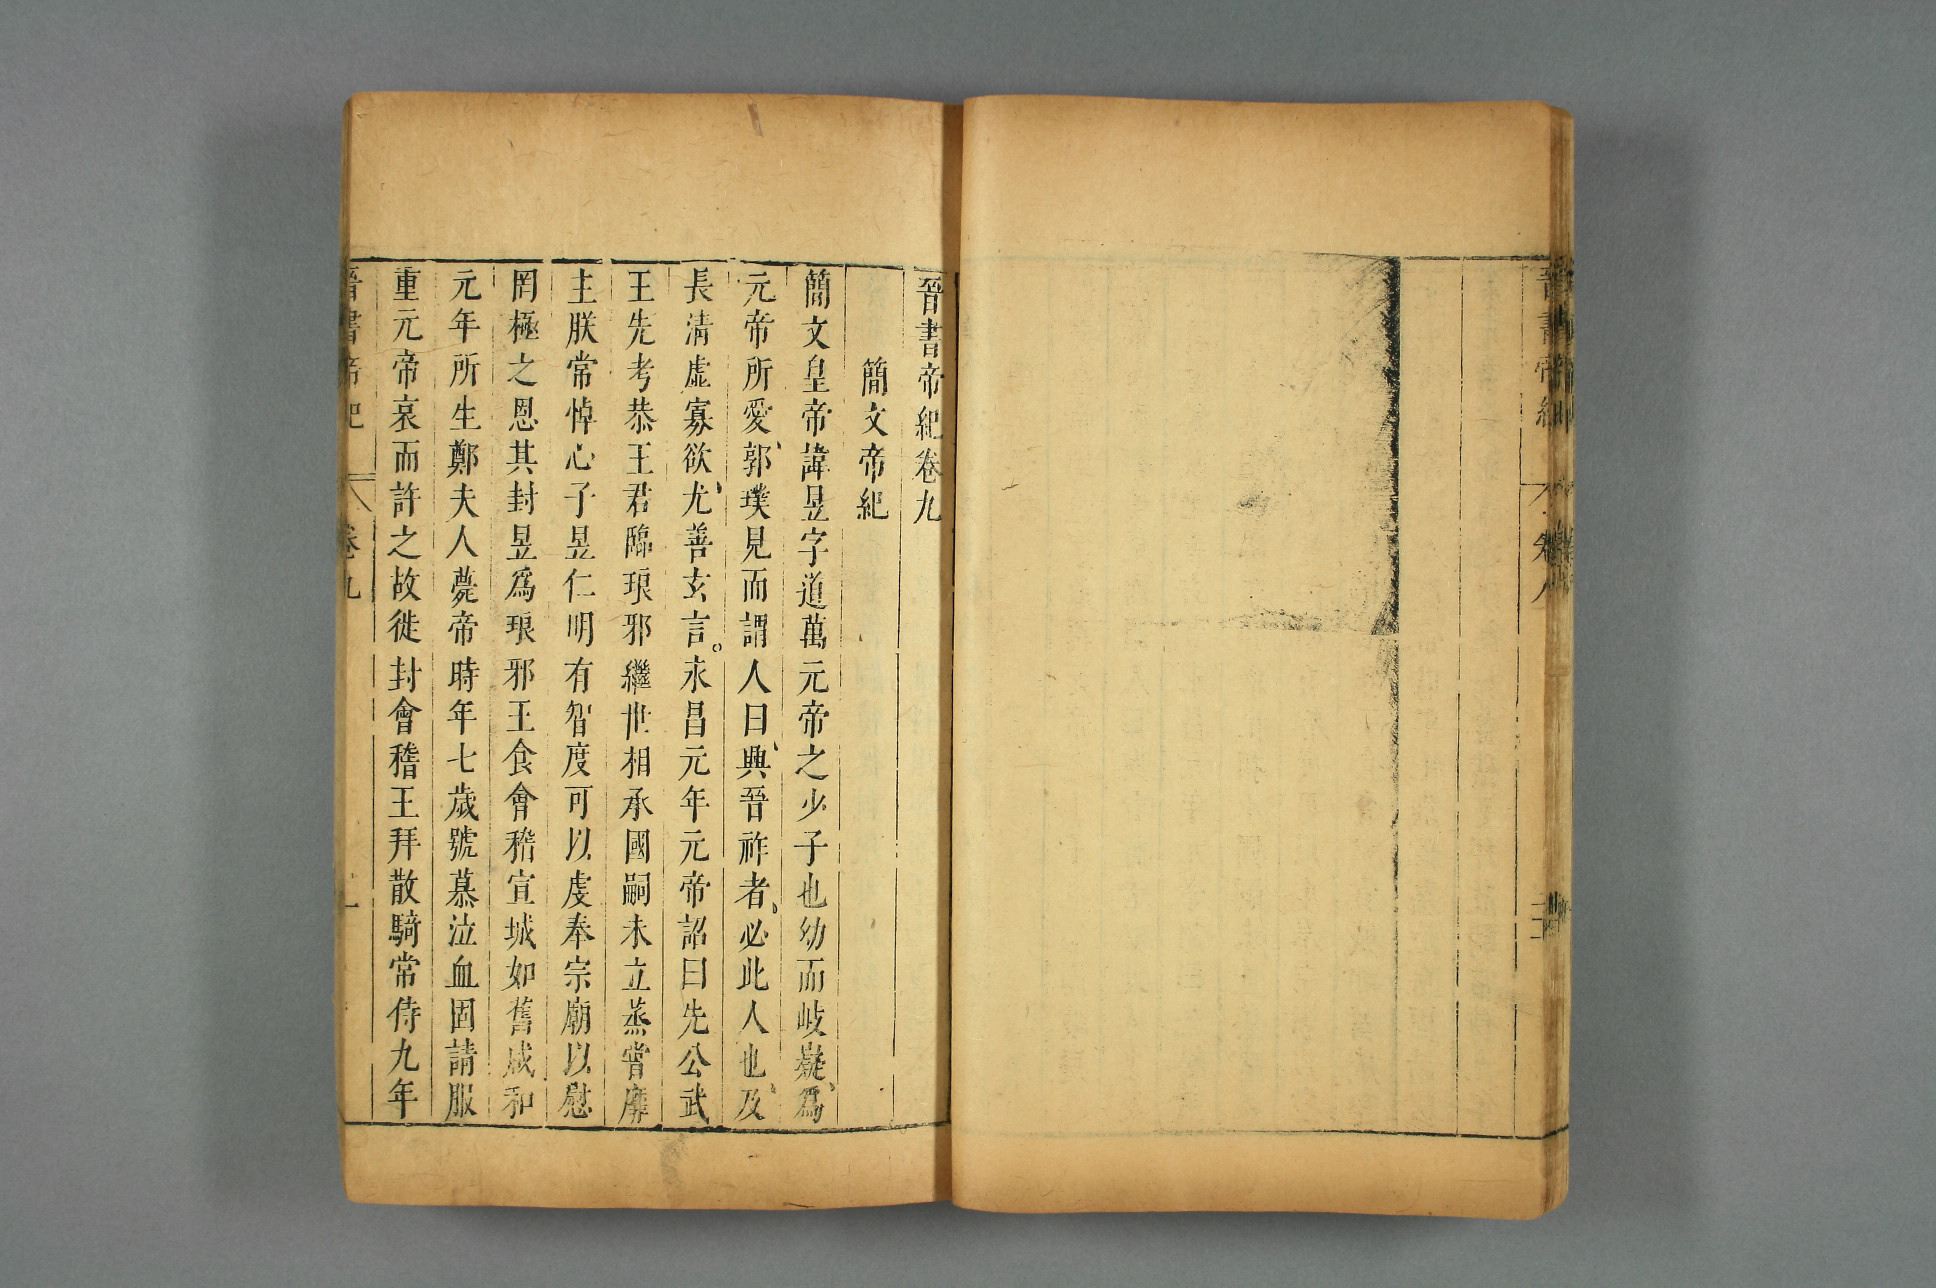 晉書帝紀
卷八
晉書帝紀卷九
簡文帝紀
簡文皇帝諱昱字道萬元帝之少子也幼而岐嶷爲
元帝所愛郭璞見而謂人曰興晉祚者必此人也及
長清虛寡欲尤善玄言永昌元年元帝詔曰先公武
王先考恭王君臨琅邪繼世相承國嗣未立蒸嘗靡
主朕常悼心子昱仁明有智度可以虔奉宗廟以慰
罔極之恩其封昱爲琅邪王食會稽宣城如舊咸和
元年所生鄭夫人薨帝時年七歲號慕泣血固請服
重元帝哀而許之故徙封會稽王拜散騎常侍九年
晉書帝紀
卷九
一